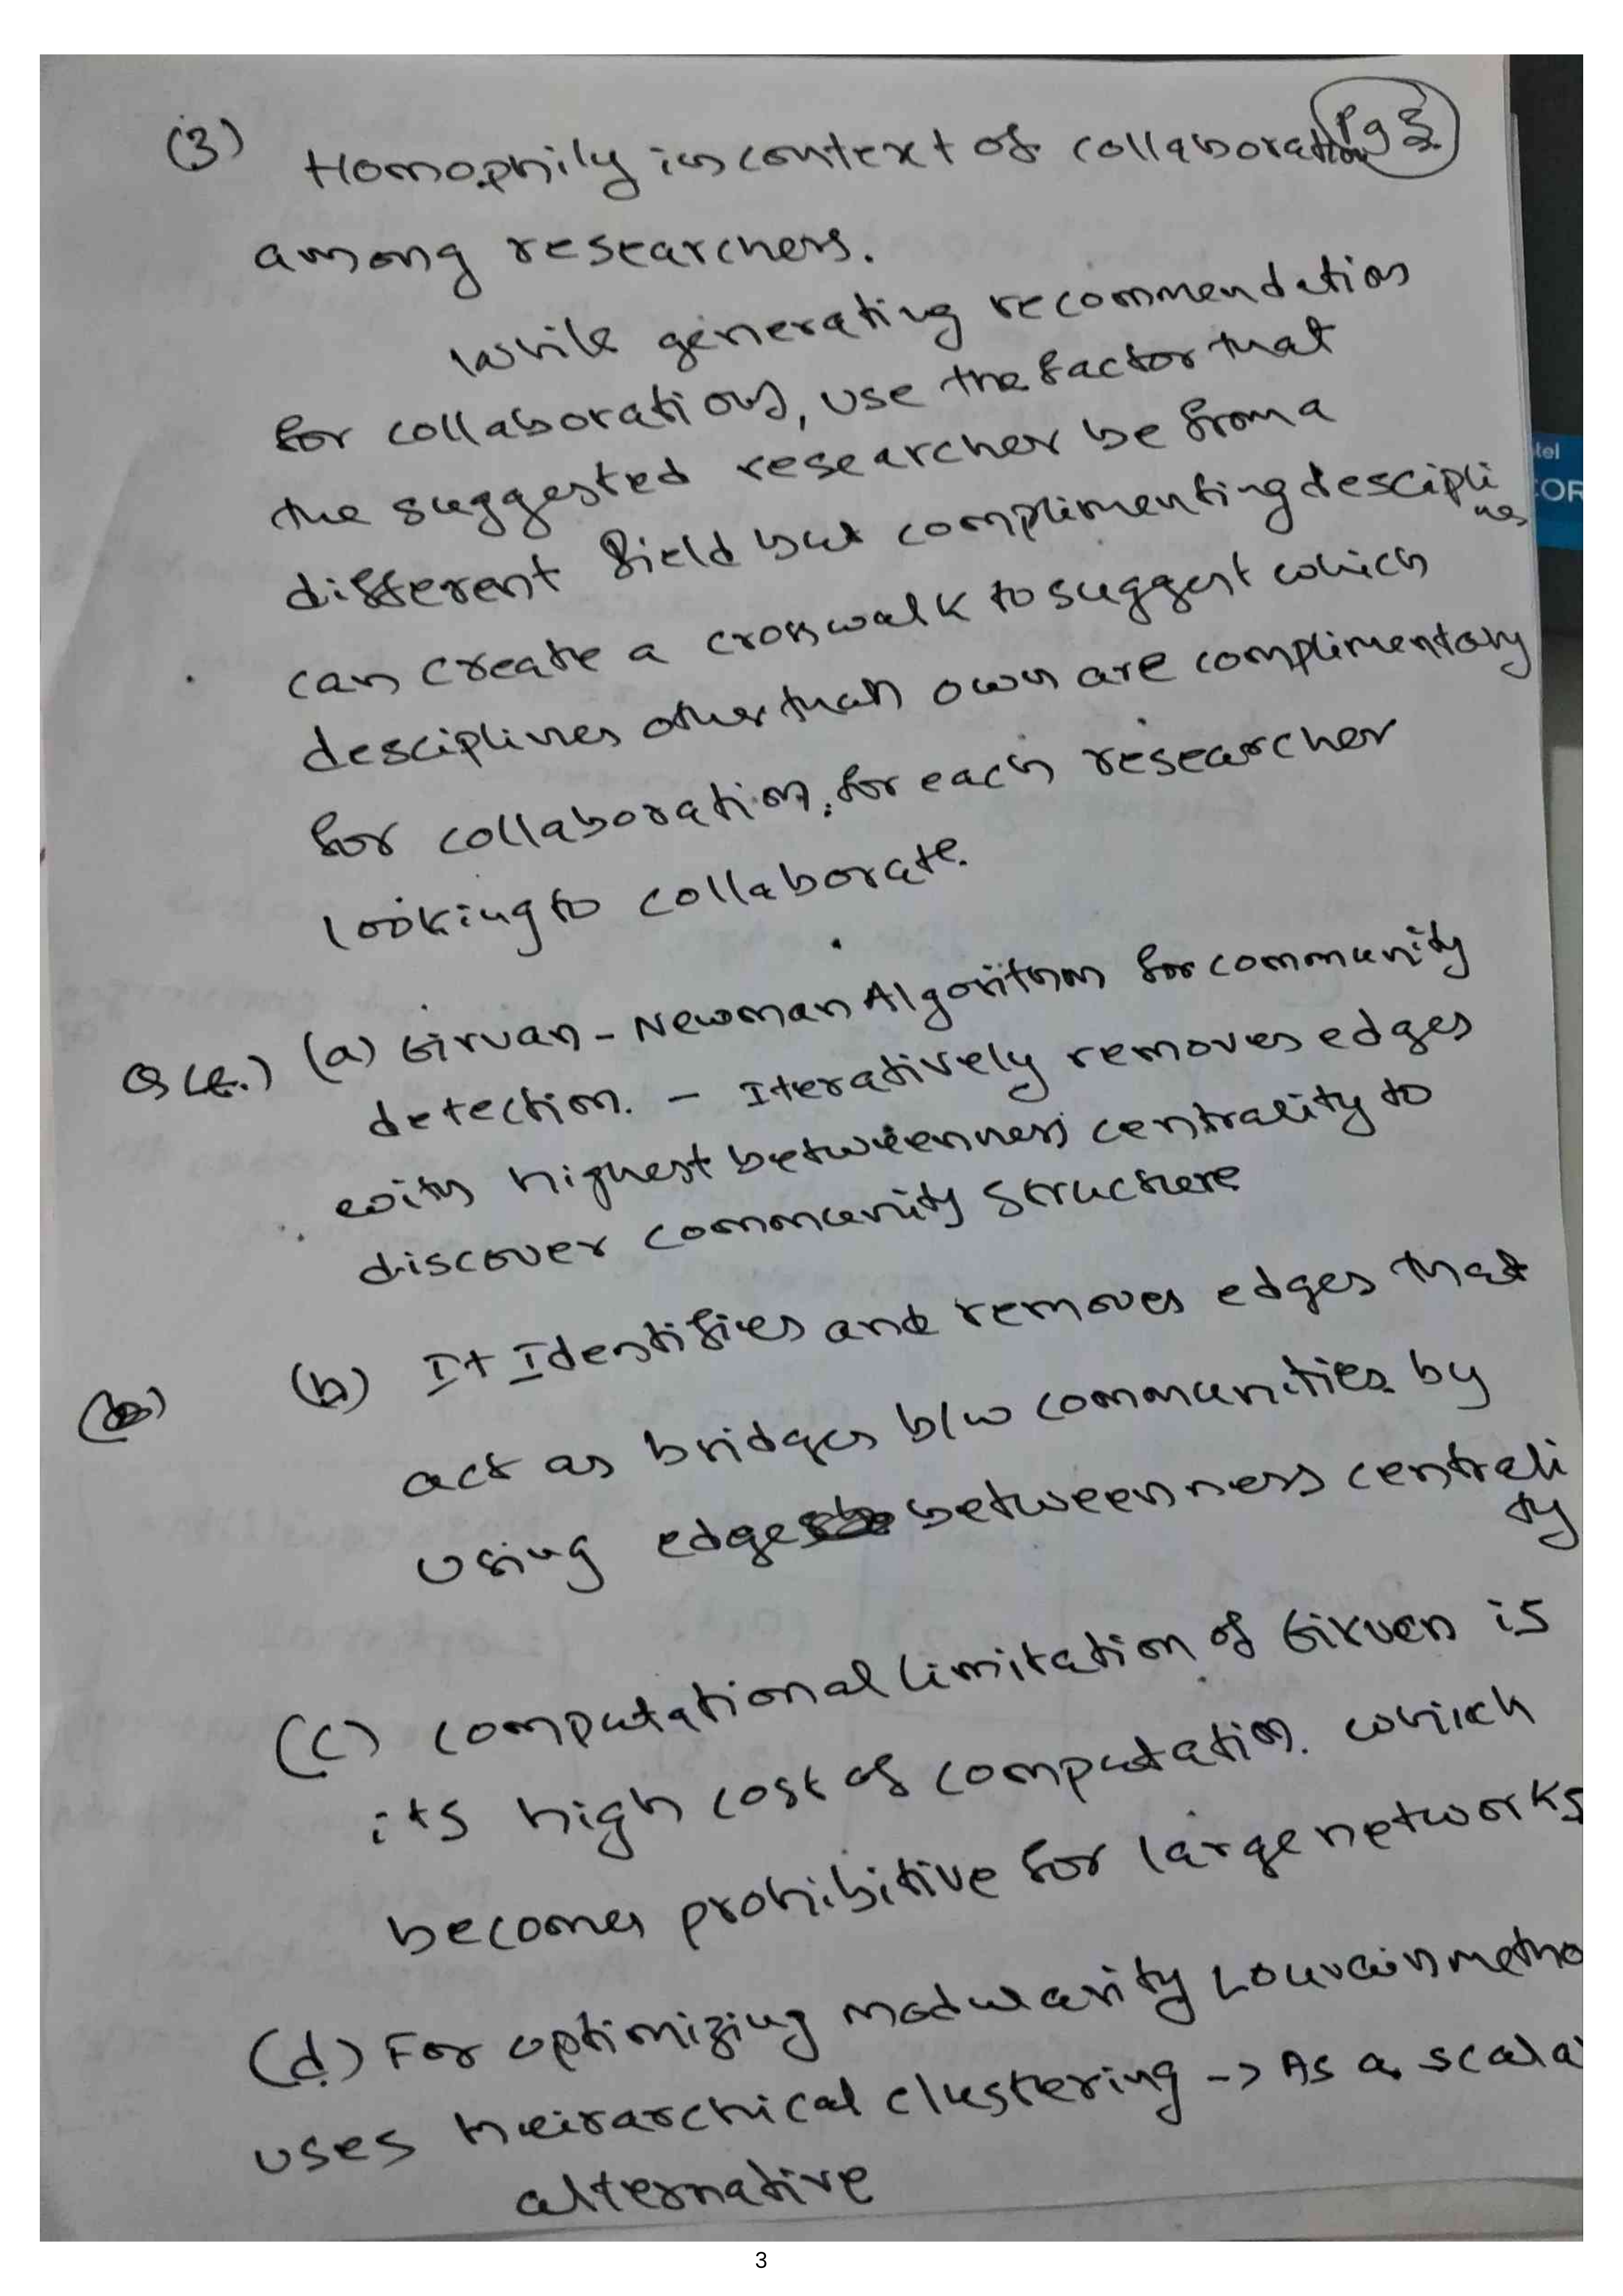 Pg 3
(3) Homophily in context of collaboration
among researchers.
While generating recommendation
for collaborations, use the factor that
the suggested researcher be from a
different field but complimenting desciplines
can create a crosswalk to suggest which
desciplines other than own are complimentary
for collaboration, for each researcher
looking to collaborate.
(a) Girvan - Newman Algorithm for community
detection. - Iteratively removes edges
with highest betweenness centrality to
discover community structure
(b) It Identifies and removes edges that
act as bridges b/w communities by
using edge betweenness centrality
(c) computational limitation of Girven is
its high cost of computation. which
becomes prohibitive for large networks
(d.) For optimizing modularity Louvain metho
uses heirarchical clustering -> As a scala
alternative
3